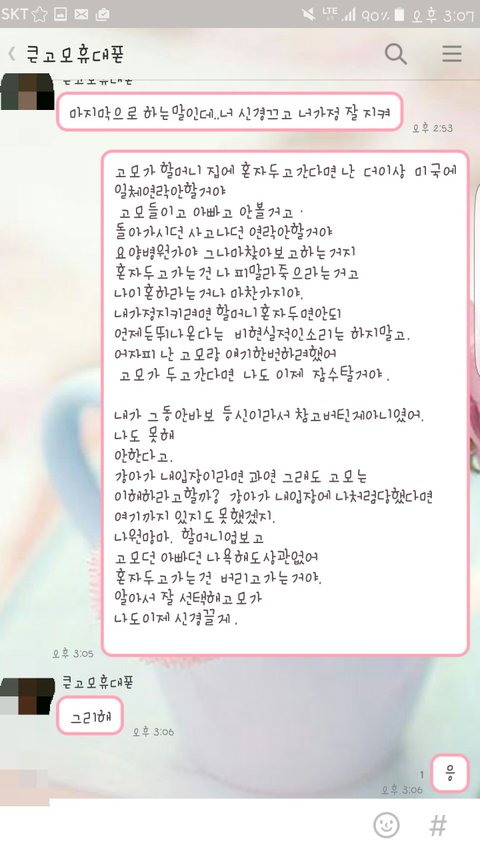 SKT LTE 90% 오후 3:07
큰고모휴대폰
큰고모휴대폰
마지막으로 하는말인데..너 신경끄고 너가정 잘 지켜
오후 2:53
고모가 할머니 집에 혼자두고간다면 난 더이상 미국에
일체연락안할거야
고모들이고 아빠고 안볼거고 ·
돌아가시던 사고나던 연락안할거야
요양병원가야 그나마찾아보고하는거지
혼자두고가는건 나 피말라죽으라는거고
나이혼하라는거나 마찬가지야.
내가정지키려면 할머니혼자두면안되
언제든뛰나온다는 비현실적인소리는 하지말고.
어차피 난 고모랑 얘기한번하려했어
고모가 두고간다면 나도 이제 잠수탈거야 .
내가 그동안바보 등신이라서 참고버틴게아니였어.
나도 못해
안한다고.
강아가 내입장이라면 과연 그래도 고모는
이해하라고할까? 강아가 내입장에 나처럼당했다면
여기까지 있지도 못했겠지.
나원망마. 할머니업보고
고모던 아빠던 나욕해도상관없어
혼자두고가는건 버리고가는거야.
알아서 잘 선택해고모가
나도이제 신경끌게.
오후 3:05
큰고모휴대폰
그리해
오후 3:06
응
1
오후 3:06
#